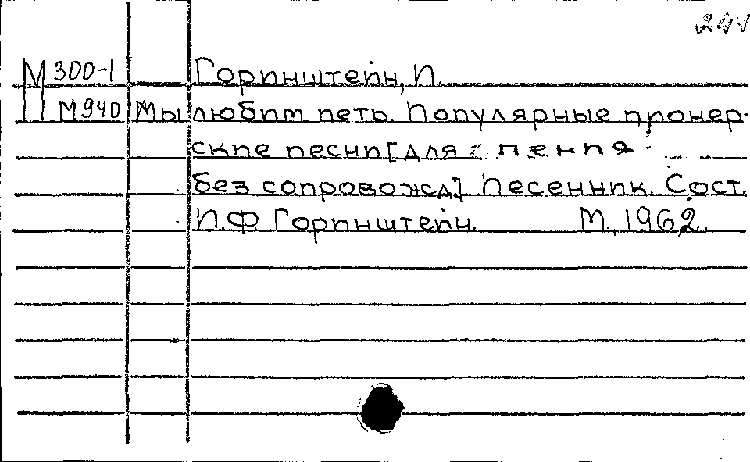 244
М 300-1 Горинштейн, И.
М940 Мы любим петь. Популярные пионер-
ские песни [для пения
без сопровожд]. Песенник. Сост.
И.Ф Горинштейн. М., 1962.